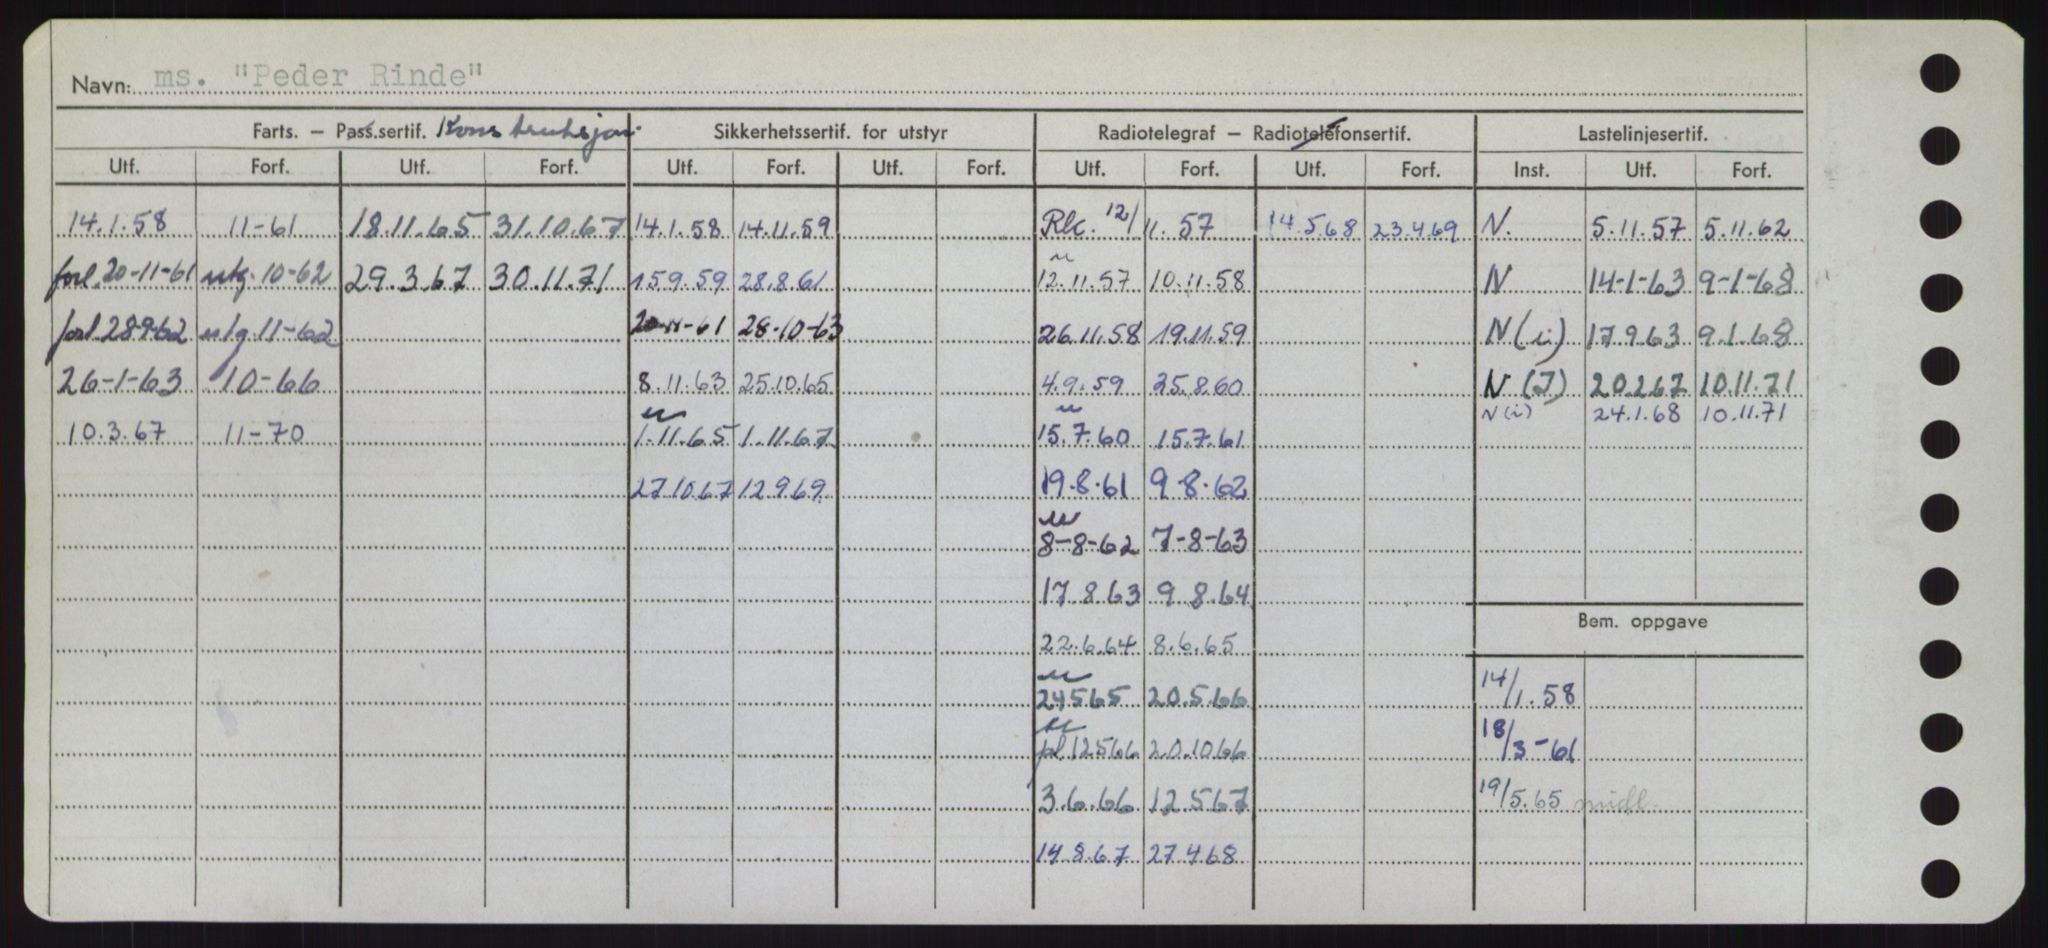 Navn: ms. "Peder Rinde"
Farts. – Pass.sertif. Konstruksjon. Sikkerhetssertif. for utstyr Radiotelegraf – Radiotelefonsertif. Lastelinjesertif.
Utf. Forf. Utf. Forf. Utf. Forf. Utf. Forf. Utf. Forf. Utf. Forf. Inst. Utf. Forf.
14.1.58 11-61 18.11.65 31.10.67 14.1.58 14.11.59 Rlc. 12/11.57 14.5.68 23.4.69 N. 5.11.57 5.11.62
forl. 20-11-61 utg. 10-62 29.3.67 30.11.71 15.9.59 28.8.61 12.11.57 10.11.58 N 14-1-63 9-1-68
forl 28-9-62 utg. 11-62 20-11-61 28-10-63 26.11.58 19.11.59 N (i) 17.9.63 9.1.68
26-1-63 10-66 8.11.63 25.10.65 4.9.59 25.8.60 N (I) 20.2.67 10.11.71
N (i) 24.1.68 10.11.71
10.3.67 11-70 1.11.65 1.11.67 15.7.60 15.7.61
27.10.67 12.9.69 19.8.61 9.8.62
8-8-62 7-8-63
17.8.63 9.8.64
Bem. oppgave
22.6.64 8.6.65
24.5.65 20.5.66 14/1.58
pl. 12.5.66 20.10.66 18/3-61
3.6.66 12.5.67 19/5.65 midl.
14.8.67 27.4.68